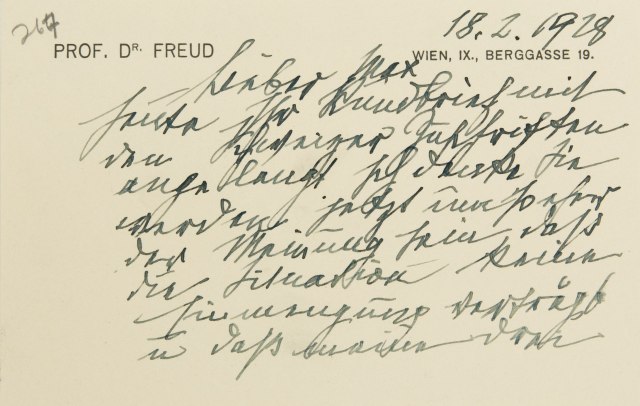 267
18.2.1928
PROF. DR. FREUD
WIEN, IX., BERGGASSE 19.
Lieber Max
Heute Ihr Rundbrief mit
den Schweizer Zuschriften
angelangt Ich denke Sie
werden jetzt umso eher
der Meinung sein daß
die Situation keine
Einmengung verträgt
u daß meine drei